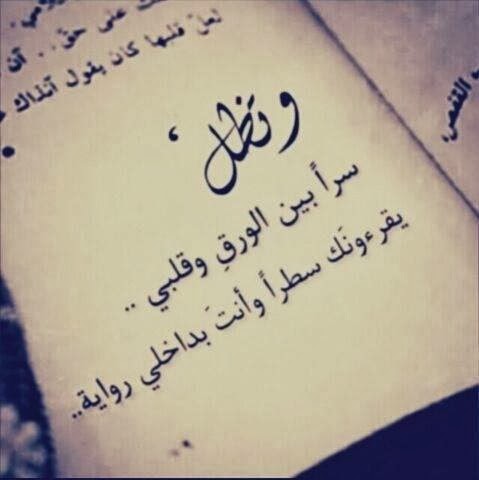 على حق .. آن
لعل قلبها كان يقول آنذاك
و تظل ،
سراً بين الورقِ وقلبي ..
يقرءونَك سطراً وأنتَ بداخلي رواية..
القفص،